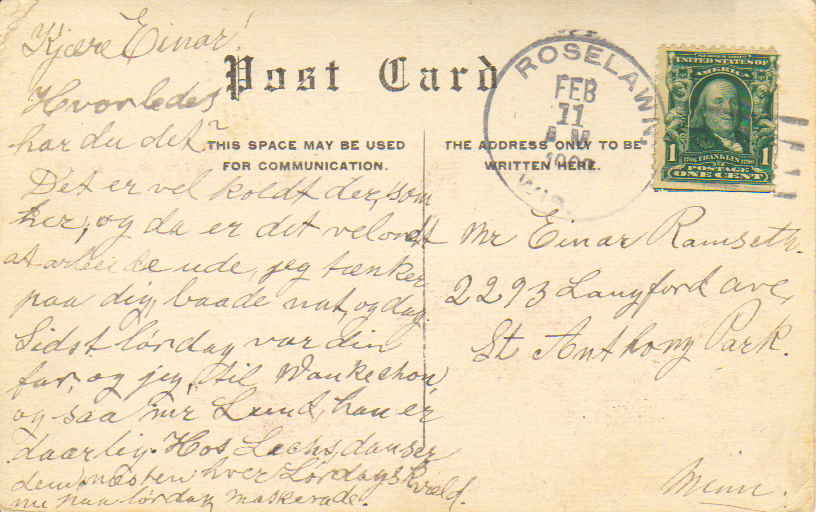 Kjære Einar!
Post Card
Hvorledes
har du det?
THIS SPACE MAY BE USED
FOR COMMUNICATION.
Det er vel koldt der, som
her, og da er det vel ondt
at arbeide ude, jeg tænker
paa dig, baade nat, og dag.
Sidst lørdag var din
far, og jeg, til Waukechon,
og saa mr Lund, han er
daarlig. Hos Lechs, danser
dem næsten hver Lørdagskvæld.
nu paa lørdag maskerade.
ROSELAWN,
FEB
11
A M
WIS.
UNITED STATES OF
AMERICA
1 1
FRANKLIN
POSTAGE
ONE CENT
THE ADDRESS ONLY TO BE
WRITTEN HERE.
Mr Einar Ramseth.
2293 Langford ave,
St Anthony Park.
Minn.